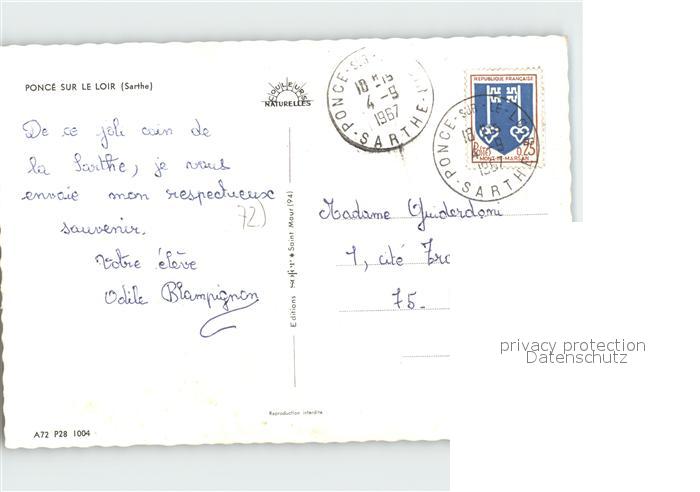 PONCÉ SUR LE LOIR (Sarthe)
COULEURS
NATURELLES
De ce joli coin de
la Sarthe, je vous
envoie mon respectueux
souvenir.
Votre élève
Odile Blampignon
72)
A72 P28 1004
Editions
★ Saint Maur (94)
Reproduction interdite
PONCE-SUR-
18 H 15
4-9
1967
SARTHE
REPUBLIQUE FRANÇAISE
POSTES
0,25
MONT-DE-MARSAN
PONCE-SUR-LE-LOIR
18
1967
SARTHE
Madame Guiderdoni
1, cité
75-
privacy protection
Datenschutz